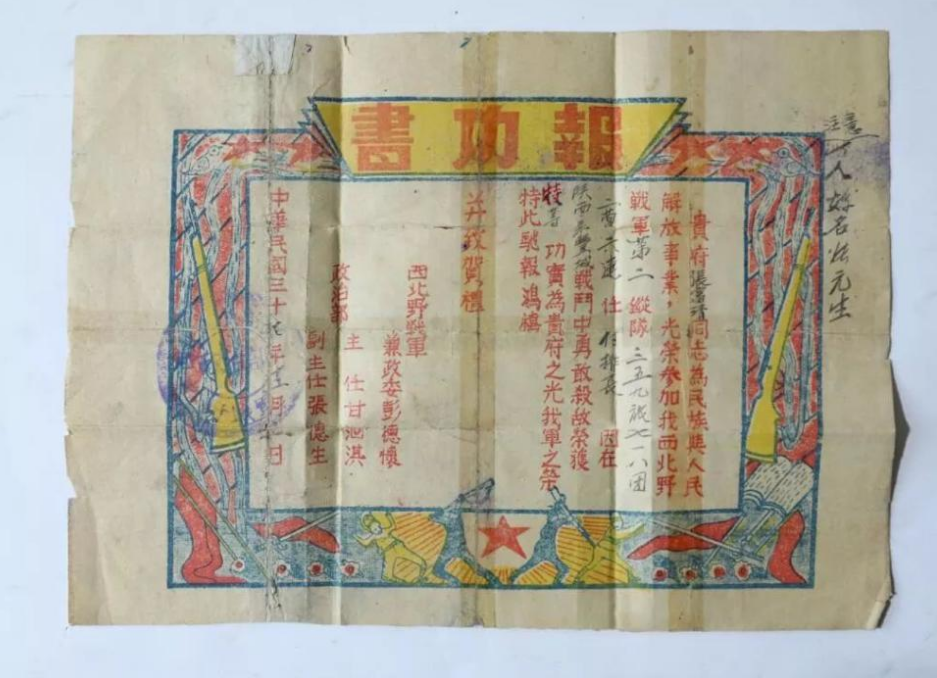 報功書
注意
人姓名
貴府張富清同志為民族與人民
解放事業，光榮參加我西北野
戰軍第二縱隊三五九旅七一八团
二营六連 任 排長 因在
陕西永豐城戰鬥中勇敢殺敌榮獲
特等 功實為貴府之光我軍之榮
特此馳報鴻禧
并致賀禮
西北野戰軍
兼政委彭德懷
政治部
主 任甘泗淇
副主任張德生
中華民國三十七年 月 日